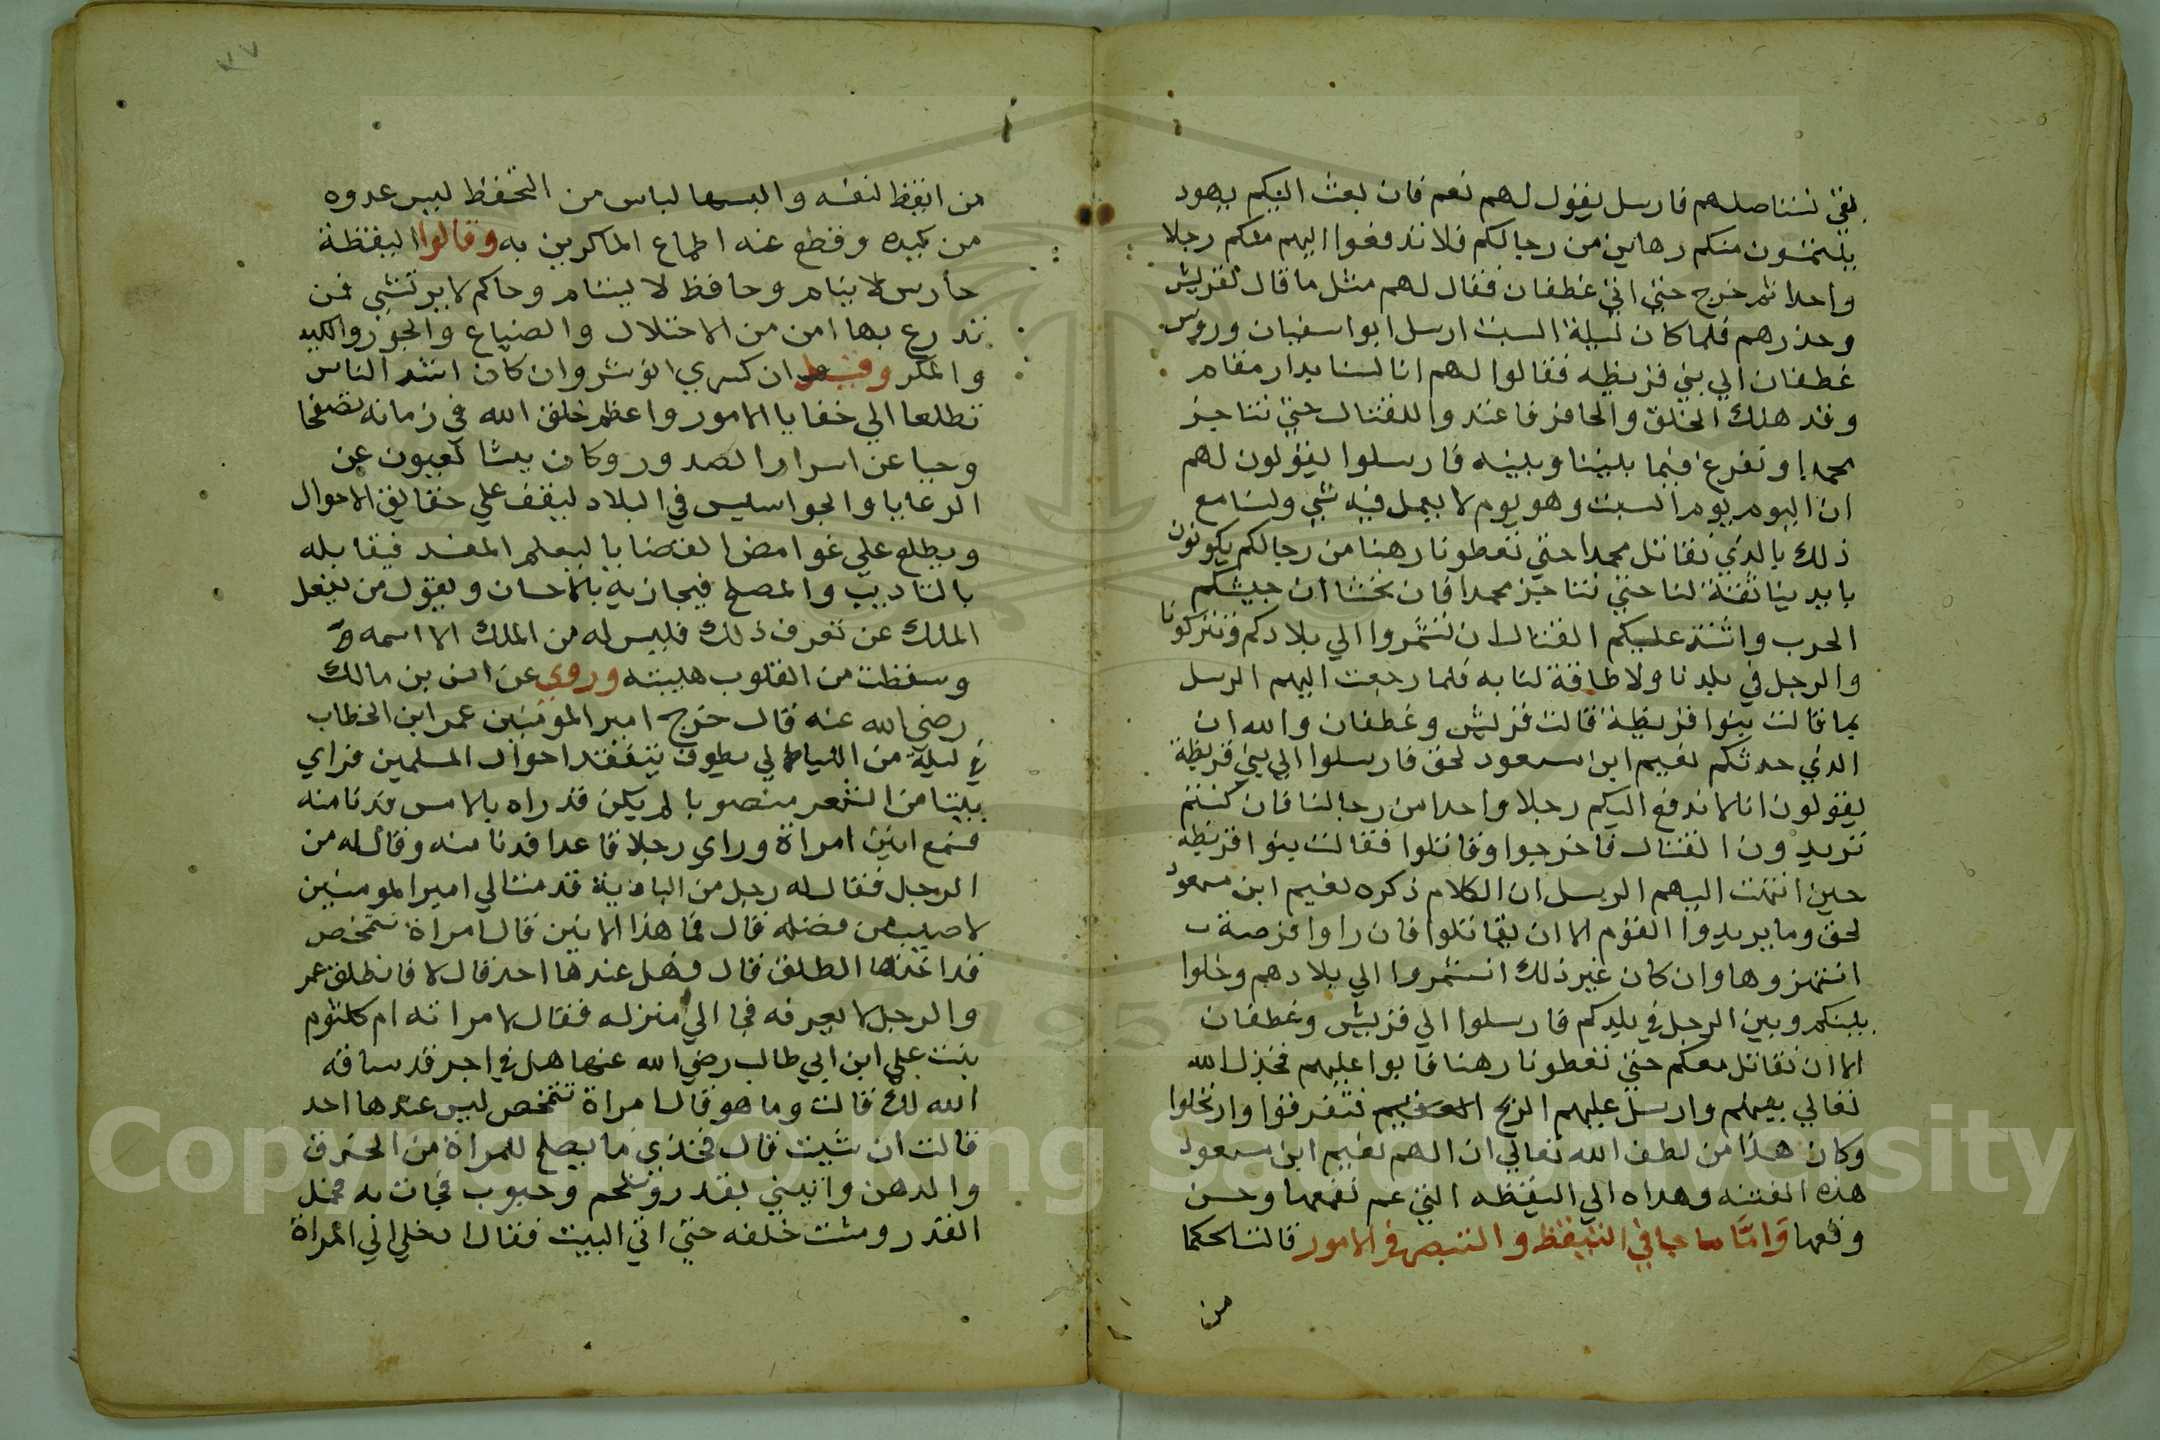 بقي نستاصلهم فارسل يقول لهم نعم فان بعث اليكم يهود
يلتمسون منكم رهاين من رجالكم فلا تدفعوا اليهم منكم رجلا
واحدا ثم خرج حتى اتى غطفان فقال لهم مثل ما قال لقريش
وحذرهم فلما كان ليلة السبت ارسل ابوا سفيان وروس
غطفان الي بني قريظه فقالوا لهم انا لسنا بدار مقام
وقد هلك الخف والحافر فاغندوا للقتال حتى نناجز
محمدا ونفرغ فيما بيننا وبينه فارسلوا ليقولون لهم
ان اليوم يوم السبت وهو يوم لا يعمل فيه شي ولسنا مع
ذلك بالذي نقاتل محمدا حتى تعطونا رهنا من رجالكم يكونون
بايدينا ثقة لنا حتى نناجز محمدا فان نخشا ان جيشكم
الحرب واشتد عليكم القتال ان تشمروا الي بلادكم وتتركونا
والرجل في بلدنا ولا طاقة لنا به فلما رجعت اليهم الرسل
بما قالت بنوا قريظة قالت قريش وغطفان والله ان
الذي حدثكم نعيم ابن مسعود لحق فارسلوا الي بني قريظة
يقولون انا لا ندفع اليكم رجلا واحدا من رجالنا فان كنتم
تريدون القتال فاخرجوا وقاتلوا فقالت بنوا قريظه
حين انتهت اليهم الرسل ان الكلام ذكره نعيم ابن مسعود
لحق وما يريدوا القوم الا ان يقاتلوا فان راوا فرصة
انتهزوها وان كان غير ذلك انشمروا الي بلادهم وخلوا
بينكم وبين الرجل في بلدكم فارسلوا الي قريش وغطفان
الا ان نقاتل معكم حتى تعطونا رهنا فابوا عليهم فخذل الله
تعالي بينهم وارسل عليهم الريح العقيم فتفرقوا وارتحلوا
وكان هذا من لطف الله تعالي ان الهم نعيم ابن مسعود
هذه الفتنه وهداه الي اليقظه التي عم نفعها وحسن
وقعها وامّا ما جا في التيقظ والتبصر في الامور قالت الحكما
من
من ايقظ لنفسه والبسها لباس من التحفظ ليس عدوه
من كيده وقطع عنه اطماع الماكرين به وقالوا اليقظة
حارس لا ينام وحافظ لا يسام وحاكم لا يرتشي فمن
تدرع بها امن من الاختلال والضياع والجور والكيد
والمكر وقيل ان كسري انوشروان كان اشد الناس
تطلعا الي خفايا الامور واعظم خلق الله في زمانه تصفحا
وحبا عن اسرار الصدور وكان يبث العيون عن
الرعايا والجواسيس في البلاد ليقف علي حقايق الاحوال
ويطلع علي غوامض القضايا ليعلم المفسد فيقابله
بالتاديب والمصلح فيجازيه بالاحسان ويقول من يفعل
الملك عن تعرف ذلك فليس له من الملك الا اسمه
وسقطت من القلوب هيبته وروي عن انس بن مالك
رضي الله عنه قال خرج امير المومنين عمر ابن الخطاب
في ليلة من الليالي يطوف يتفقد احوال المسلمين فراي
بيتا من الشعر منصوبا لم يكن قد راه بالامس فدنا منه
فسمع انين امراة وراي رجلا قاعدا فدنا منه وقال له من
الرجل فقال له رجل من البادية قدمت الي امير المومنين
لاصيب من فضله قال فما هذا الانين قال امراة تتمخض
قد اخذها الطلق قال فهل عندها احد قال لا فانطلق عمر
والرجل لا يعرفه فجا الي منزله فقال لامراته ام كلثوم
بنت علي ابن ابي طالب رضي الله عنها هل في اجر قد ساقه
الله لك قالت وما هو قال امراة تتمخض ليس عندها احد
قالت ان شيت قال فخذي ما يصلح للمراة من الخرق
والدهن واتيني بقدر وشحم وحبوب فجات به فحمل
القدر ومشت خلفه حتي اتي البيت فقال ادخلي الي المراة